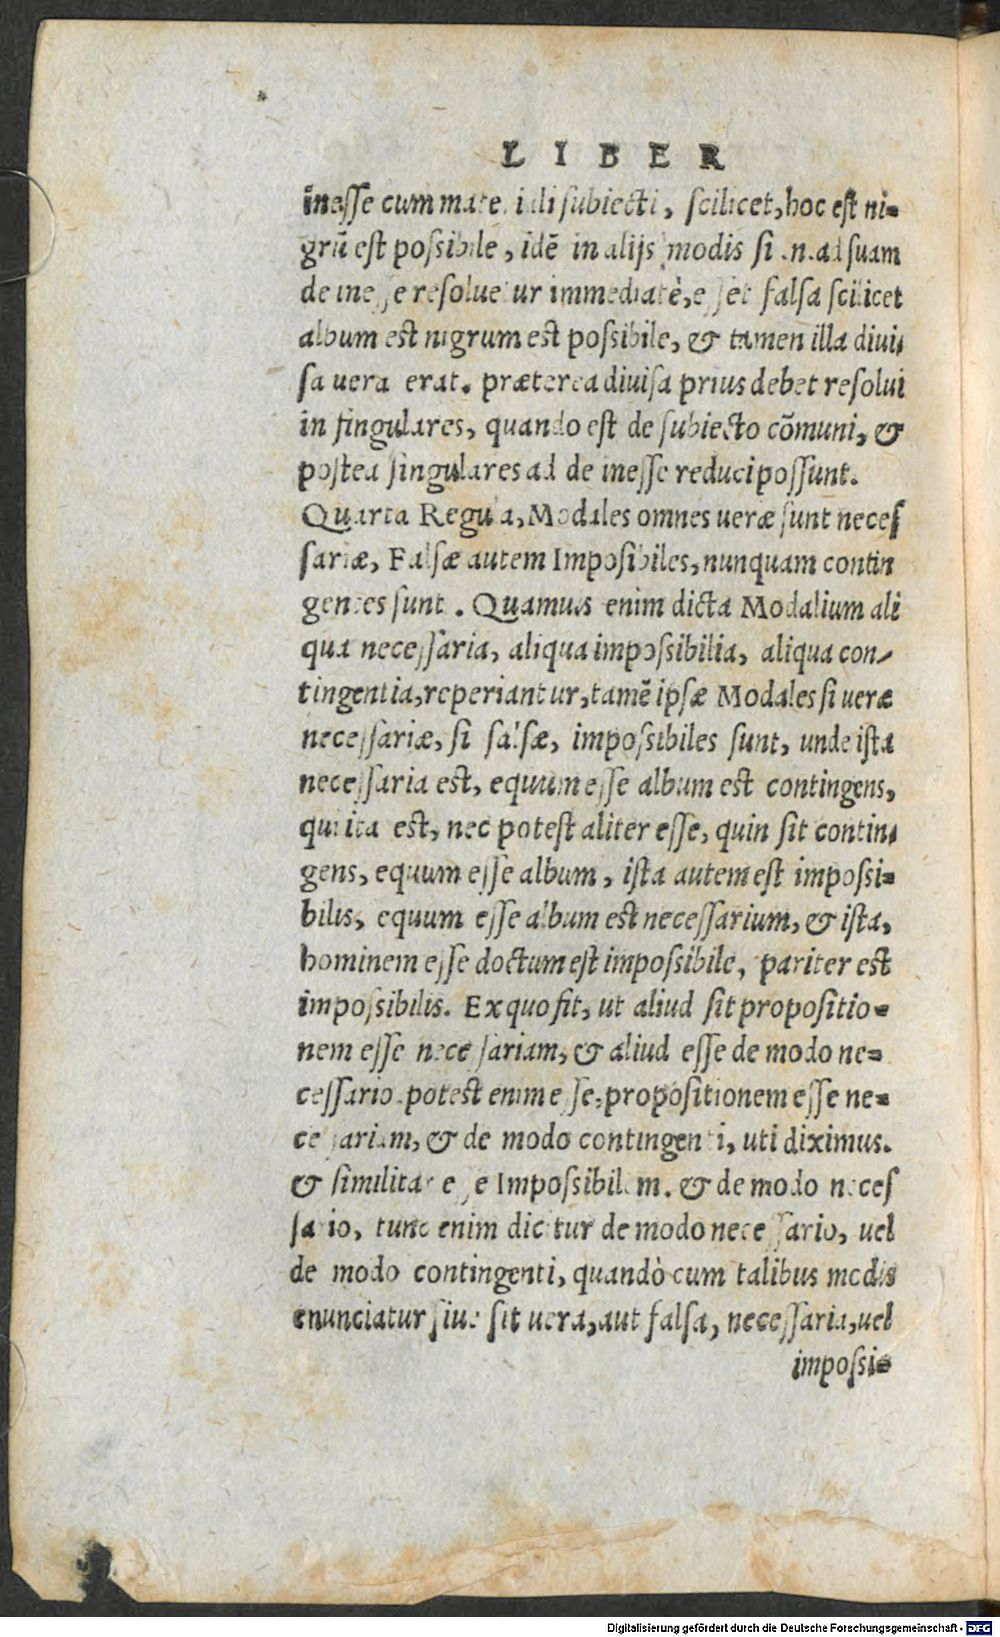 LIBER
inesse cum materiali subiecti, scilicet, hoc est ni-
grũ est possibile, idẽ in alijs modis si .n. ad suam
de inesse resoluetur immediatè, esset falsa scilicet
album est nigrum est possibile, & tamen illa diui-
sa uera erat. præterea diuisa prius debet resolui
in singulares, quando est de subiecto cõmuni, &
postea singulares ad de inesse reduci possunt.
Quarta Regula, Modales omnes ueræ sunt neces
sariæ, Falsæ autem Imposibiles, nunquam contin
gentes sunt. Quamuis enim dicta Modalium ali
qua necessaria, aliqua impossibilia, aliqua con-
tingentia, reperiantur, tamẽ ipsæ Modales si ueræ
necessariæ, si falsæ, impossibiles sunt, unde ista
necessaria est, equum esse album est contingens,
qui ita est, nec potest aliter esse, quin sit contin-
gens, equum esse album, ista autem est impossi-
bilis, equum esse album est necessarium, & ista,
hominem esse doctum est impossibile, pariter est
impossibilis. Ex quo fit, ut aliud sit propositio-
nem esse necessariam, & aliud esse de modo ne-
cessario potest enim esse, propositionem esse ne-
cessariam, & de modo contingenti, uti diximus.
& similitar esse Impossibilem. & de modo neces
sario, tunc enim dicitur de modo necessario, uel
de modo contingenti, quandò cum talibus modis
enunciatur siue sit uera, aut falsa, necessaria, uel
impossi-
Digitalisierung gefördert durch die Deutsche Forschungsgemeinschaft - DFG